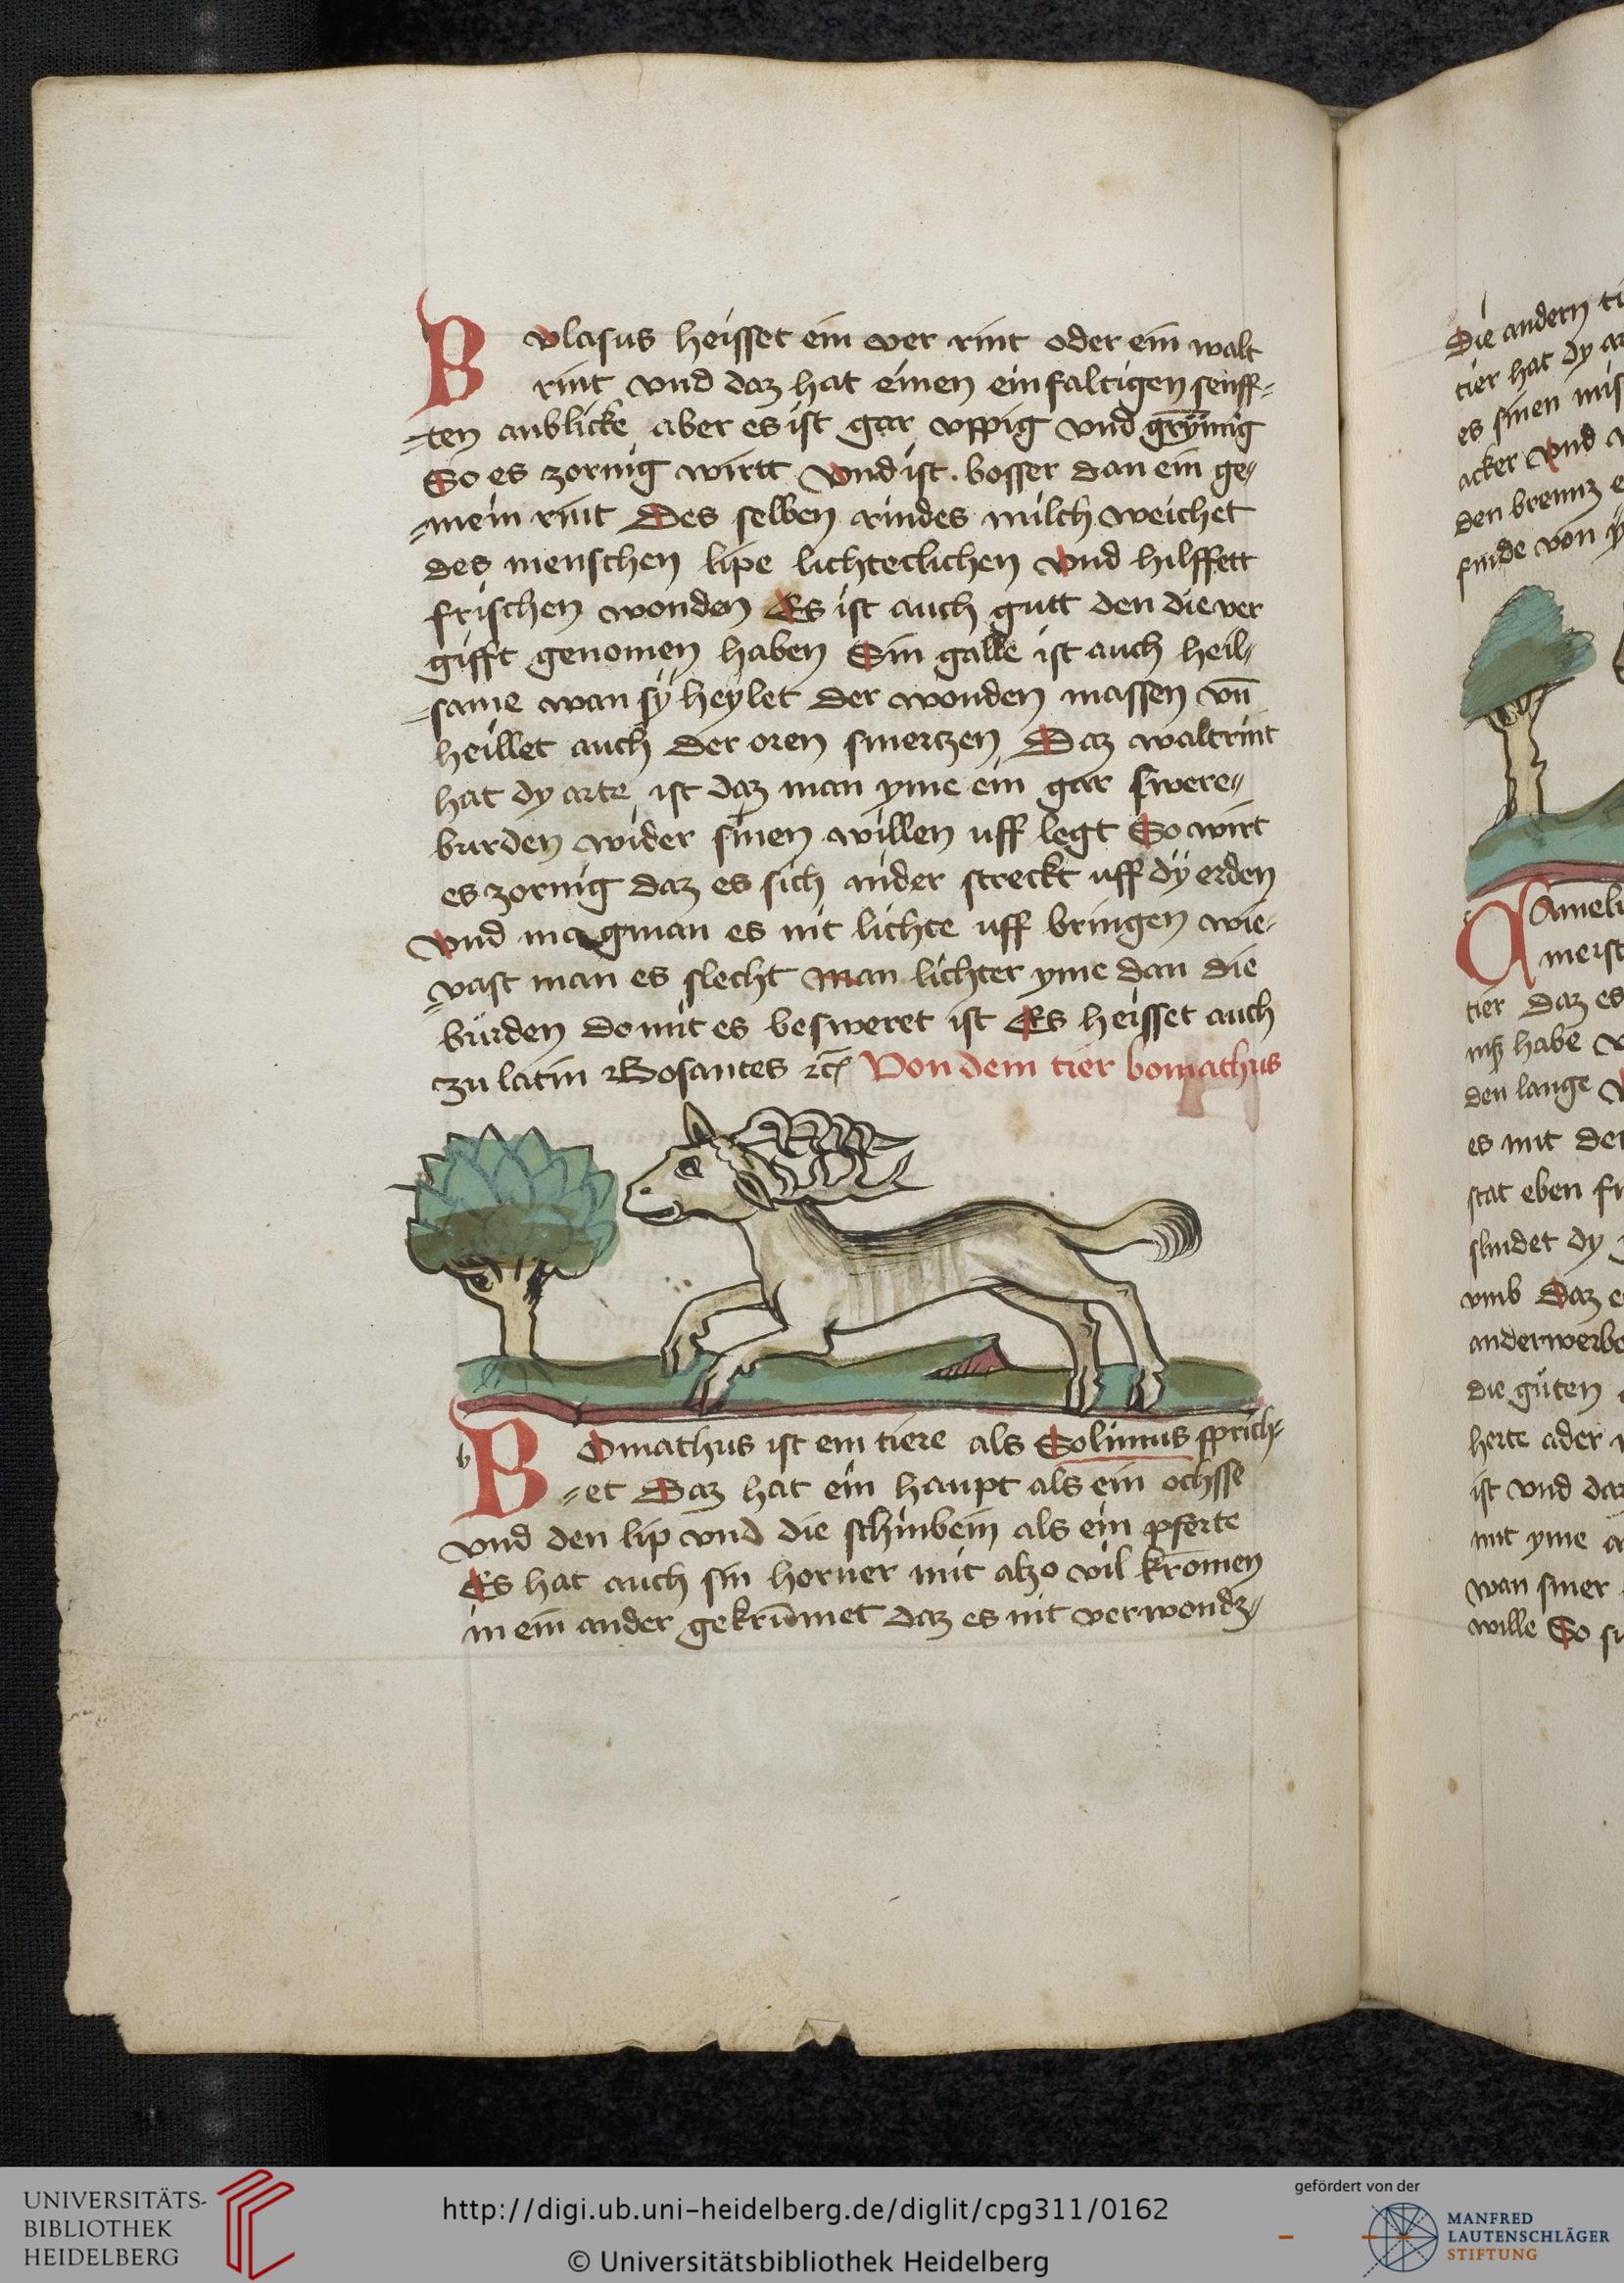 Bvlasus heisset ein ver rint oder ein walt
rint vnd daz hat einen einfaltigen senff-
-ten anblicke aber es ist gar vppig vnd grÿmig
So es zornig wirtt vnd ist bosser dan ein ge-
-mein rint Des selben rindes milch weichet
des menschen lipe lichteclichen vnd hilffett
frischen wonden Es ist auch gutt den die ver
gifft genomen haben Sin galle ist auch heil-
-same wan sÿ heÿlet der wonden massen vn̄
heillet auch der oren smertzen Daz waltrint
hat dy arte ist daz man yme ein gar swere-
burden wider sinen willen uff legt So wirt
es zornig daz es sich nider streckt uff dÿ erden
vnd mag man es nit lichte uff bringen wie-
-vast man es slecht man lichter yme dan die
bürden do mit es besweret ist Es heisset auch
zu latin Bosantes Von dem tier bomathus
b BOmathus ist ein tiere als Solinus sprich-
-et Daz hat ein haupt als ein ochsse
vnd den lip vnd die schinbein als ein pferte
Es hat auch sin horner mit alzo vil kromen
in ein ander gekrūmet daz es nit verwondz-
Die andern
tier hat dy
es sinen
acker vnd
den brennz
finde von
tier daz es
habe
den lange
es mit
stat eben
slindet dy
vmb Daz
die güten
herte ader
ist vnd
mit yme
wan siner
wille So
UNIVERSITÄTS-
BIBLIOTHEK
HEIDELBERG
http://digi.ub.uni-heidelberg.de/diglit/cpg311/0162
© Universitätsbibliothek Heidelberg
gefördert von der
MANFRED
LAUTENSCHLÄGER
STIFTUNG